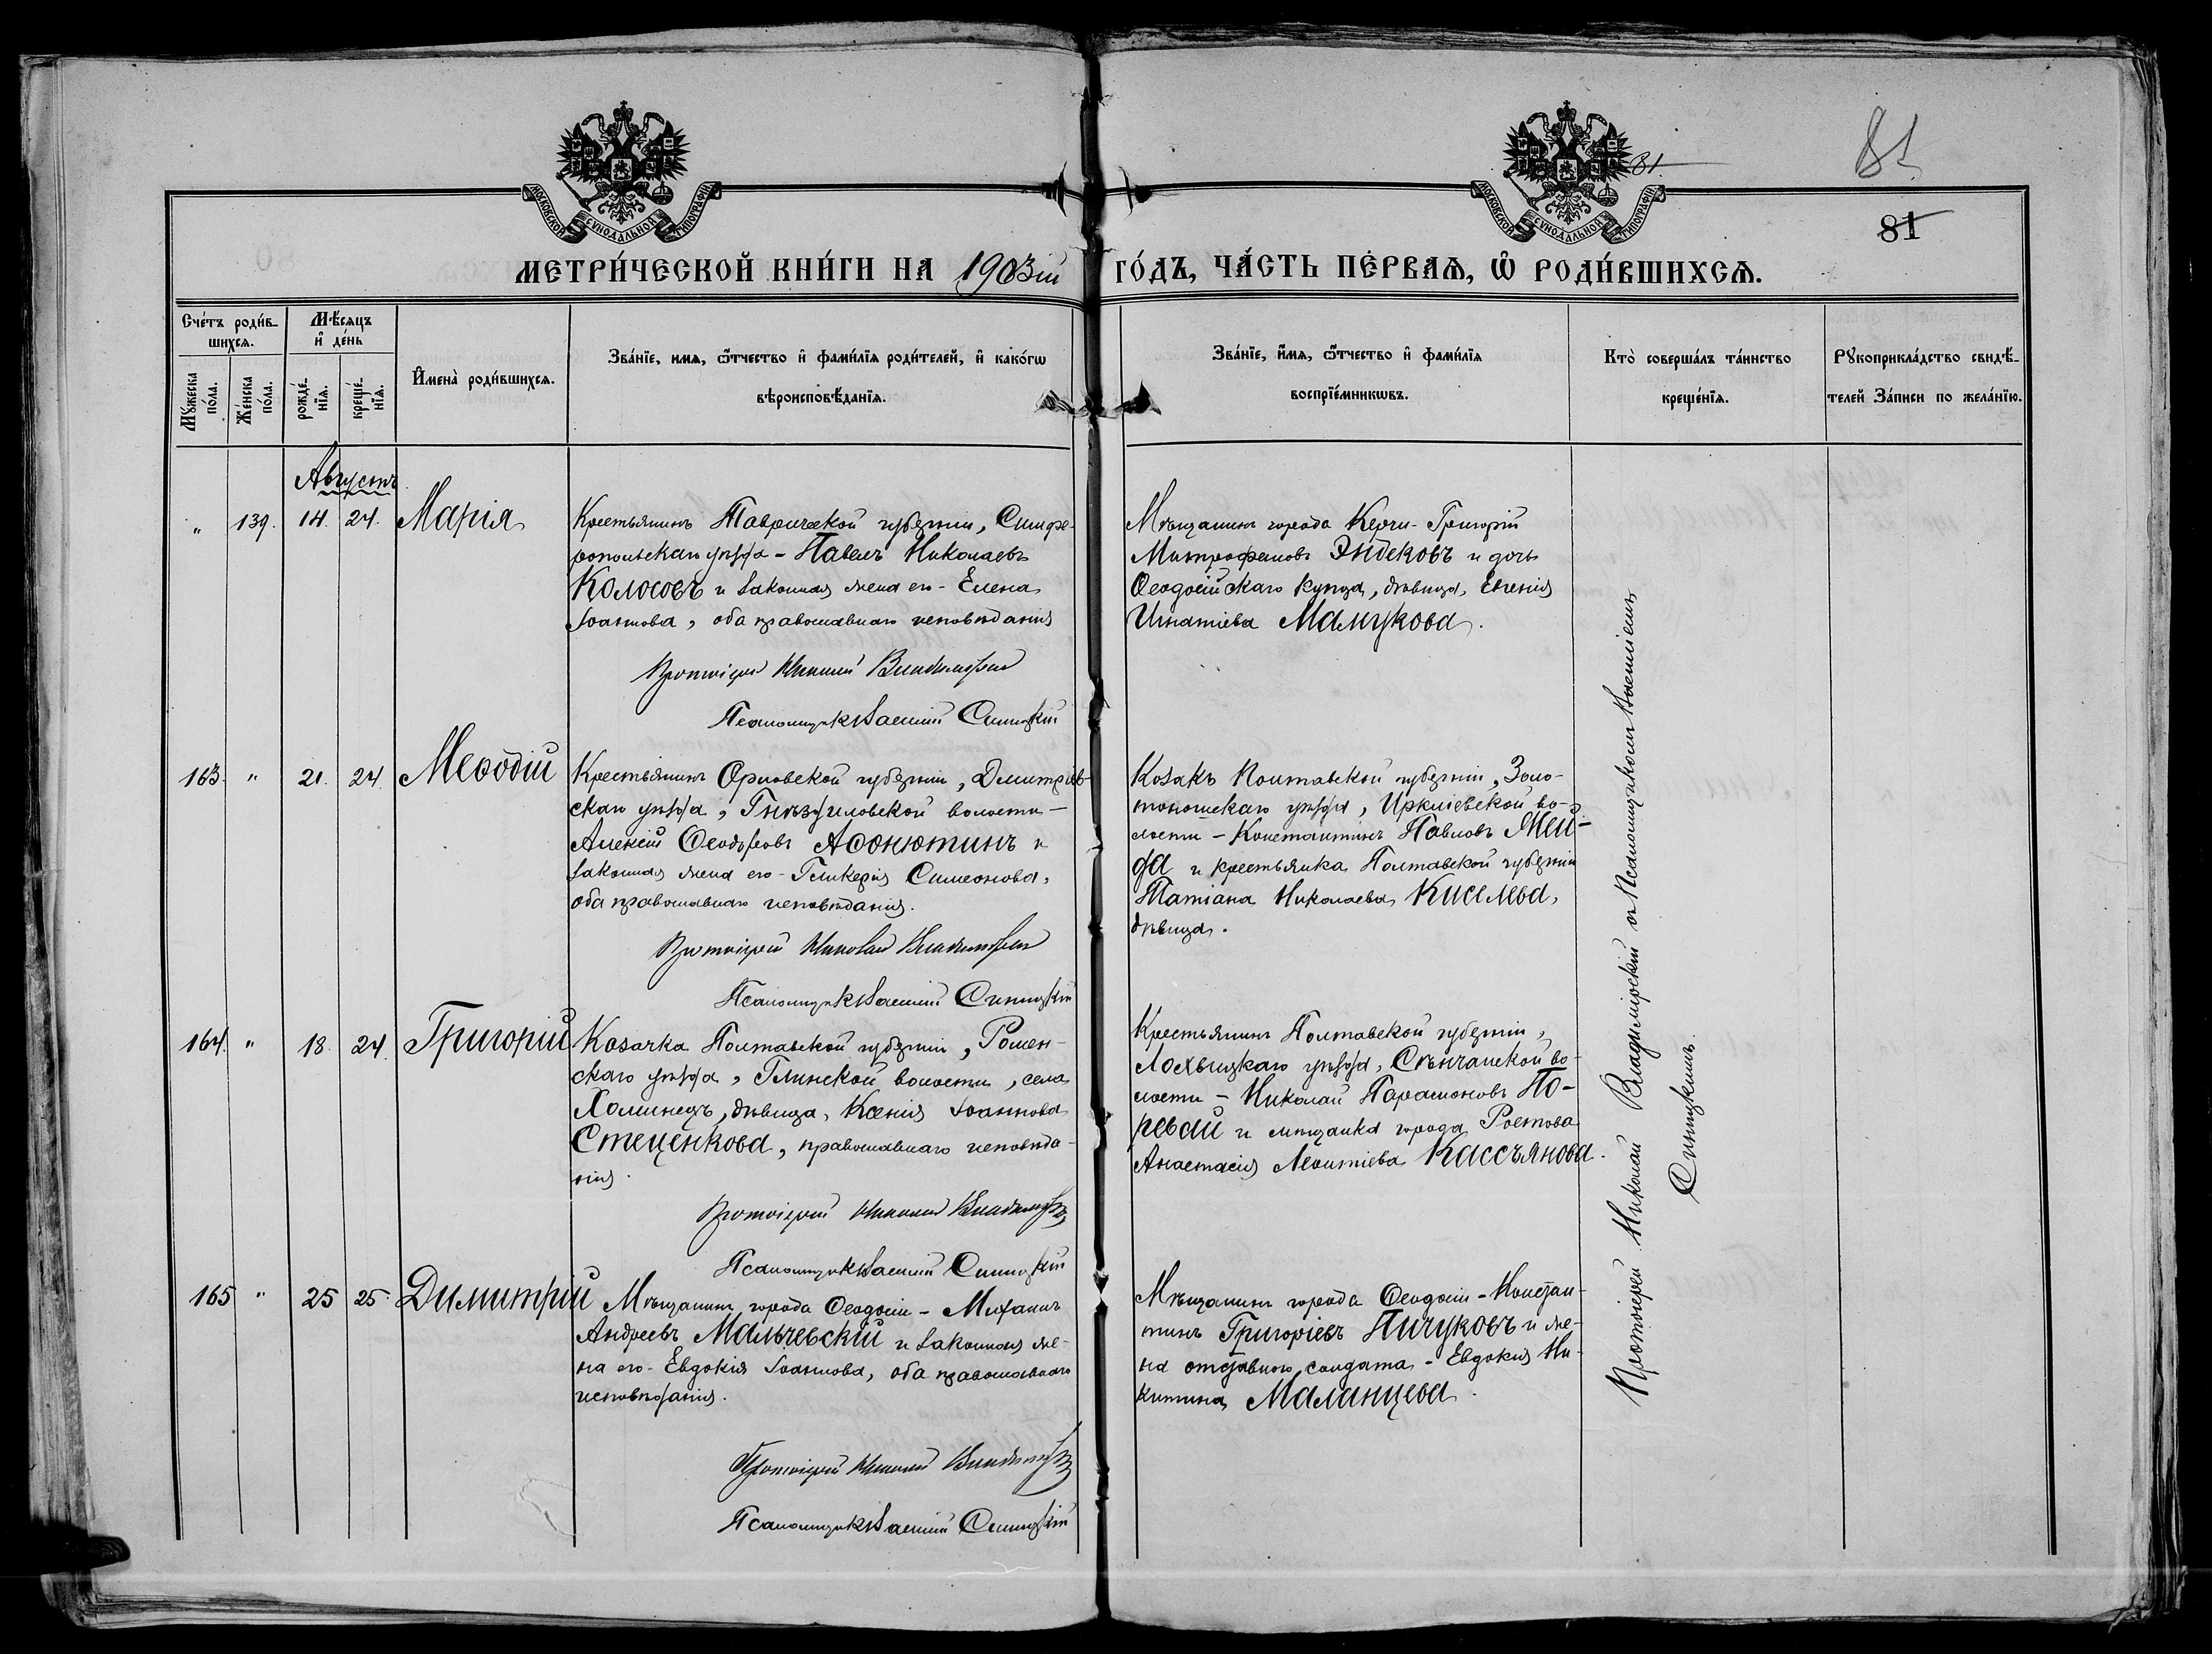 81.
81
81
МОСКОВСКОЙ СУНОДАЛЬНОЙ ТИПОГРАФІИ
МОСКОВСКОЙ СУНОДАЛЬНОЙ ТИПОГРАФІИ
МЕТРИ́ЧЕСКОЙ КНИ́ГИ НА 1903ій ГО́ДЪ, ЧА́СТЬ ПЕ́РВАЯ, Ѡ РОДИ́ВШИХСЯ.
Сче́тъ роди́в-
шихся.
Мѣ́сяцъ
и҆ де́нь
Мꙋ́жеска
по́ла.
Же́нска
по́ла.
рожде́-
нїя.
креще́-
нїя.
И҆мена̀ роди́вшихся.
Зва́нїе, имя, ѻ҆́тчество и҆ фами́лїя роди́телей, и҆ како́гѡ
вѣроисповѣ́данїя.
Зва́нїе, и҆́мя, ѻ҆́тчество и҆ фами́лїя
воспрїе́мникѡвъ.
Кто̀ соверша́лъ та́инство
креще́нїя.
Рꙋкоприкла́дство свидѣ́-
телей За́писи по жела́нїю.
Августъ
" 139. 14. 24. Марія
Крестьянинъ Таврической губерніи, Симфе-
ропольскаго уѣзда - Павелъ Николаевъ
Колосовъ и законная жена его - Елена
Іоаннова, оба православнаго исповѣданія
Протоіерей Николай Владимірскій
Псаломщикъ Василій Синицкій
Мѣщанинъ города Керчи - Григорій
Митрофановъ Эндековъ и дочь
Ѳеодосійскаго купца, дѣвица, Евгенія
Игнатіева Мамукова.
163. " 21. 24. Меѳодій
Крестьянинъ Орловской губерніи, Дмитров-
скаго уѣзда, Гнѣздиловской волости -
Алексій Ѳеодоровъ Аѳонютинъ и
законная жена его - Гликерія Симеонова,
оба православнаго исповѣданія.
Протоіерей Николай Владимірскій
Псаломщикъ Василій Синицкій
Козакъ Полтавской губерніи, Золо-
тоношскаго уѣзда, Ирклѣевской во-
лости - Константинъ Павловъ Жей-
да и крестьянка Полтавской губерніи
Татіана Николаева Киселева,
дѣвица.
164. " 18. 24. Григорій
Козачка Полтавской губерніи, Ромен-
скаго уѣзда, Глинской волости, села
Хоминецъ, дѣвица, Ксенія Іоаннова
Стеценкова, православнаго исповѣда-
нія.
Протоіерей Николай Владимірскій
Псаломщикъ Василій Синицкій
Крестьянинъ Полтавской губерніи,
Лохвицкаго уѣзда, Сѣнчанской во-
лости - Николай Парамоновъ По-
ревай и мѣщанка города Ростова
Анастасія Леонтіева Кассьянова.
165 " 25 25 Димитрій
Мѣщанинъ города Ѳеодосіи - Михаилъ
Андреевъ Мальчевскій и законная же-
на его - Евдокія Іоаннова, оба православнаго
исповѣданія.
Протоіерей Николай Владимірскій
Псаломщикъ Василій Синицкій
Мѣщанинъ города Ѳеодосіи - Констан-
тинъ Григоріевъ Пичуковъ и же-
на отставного солдата - Евдокія Ни-
китина Маланцева.
Протоіерей Николай Владимірскій съ Псаломщикомъ Василіемъ
Синицкимъ.